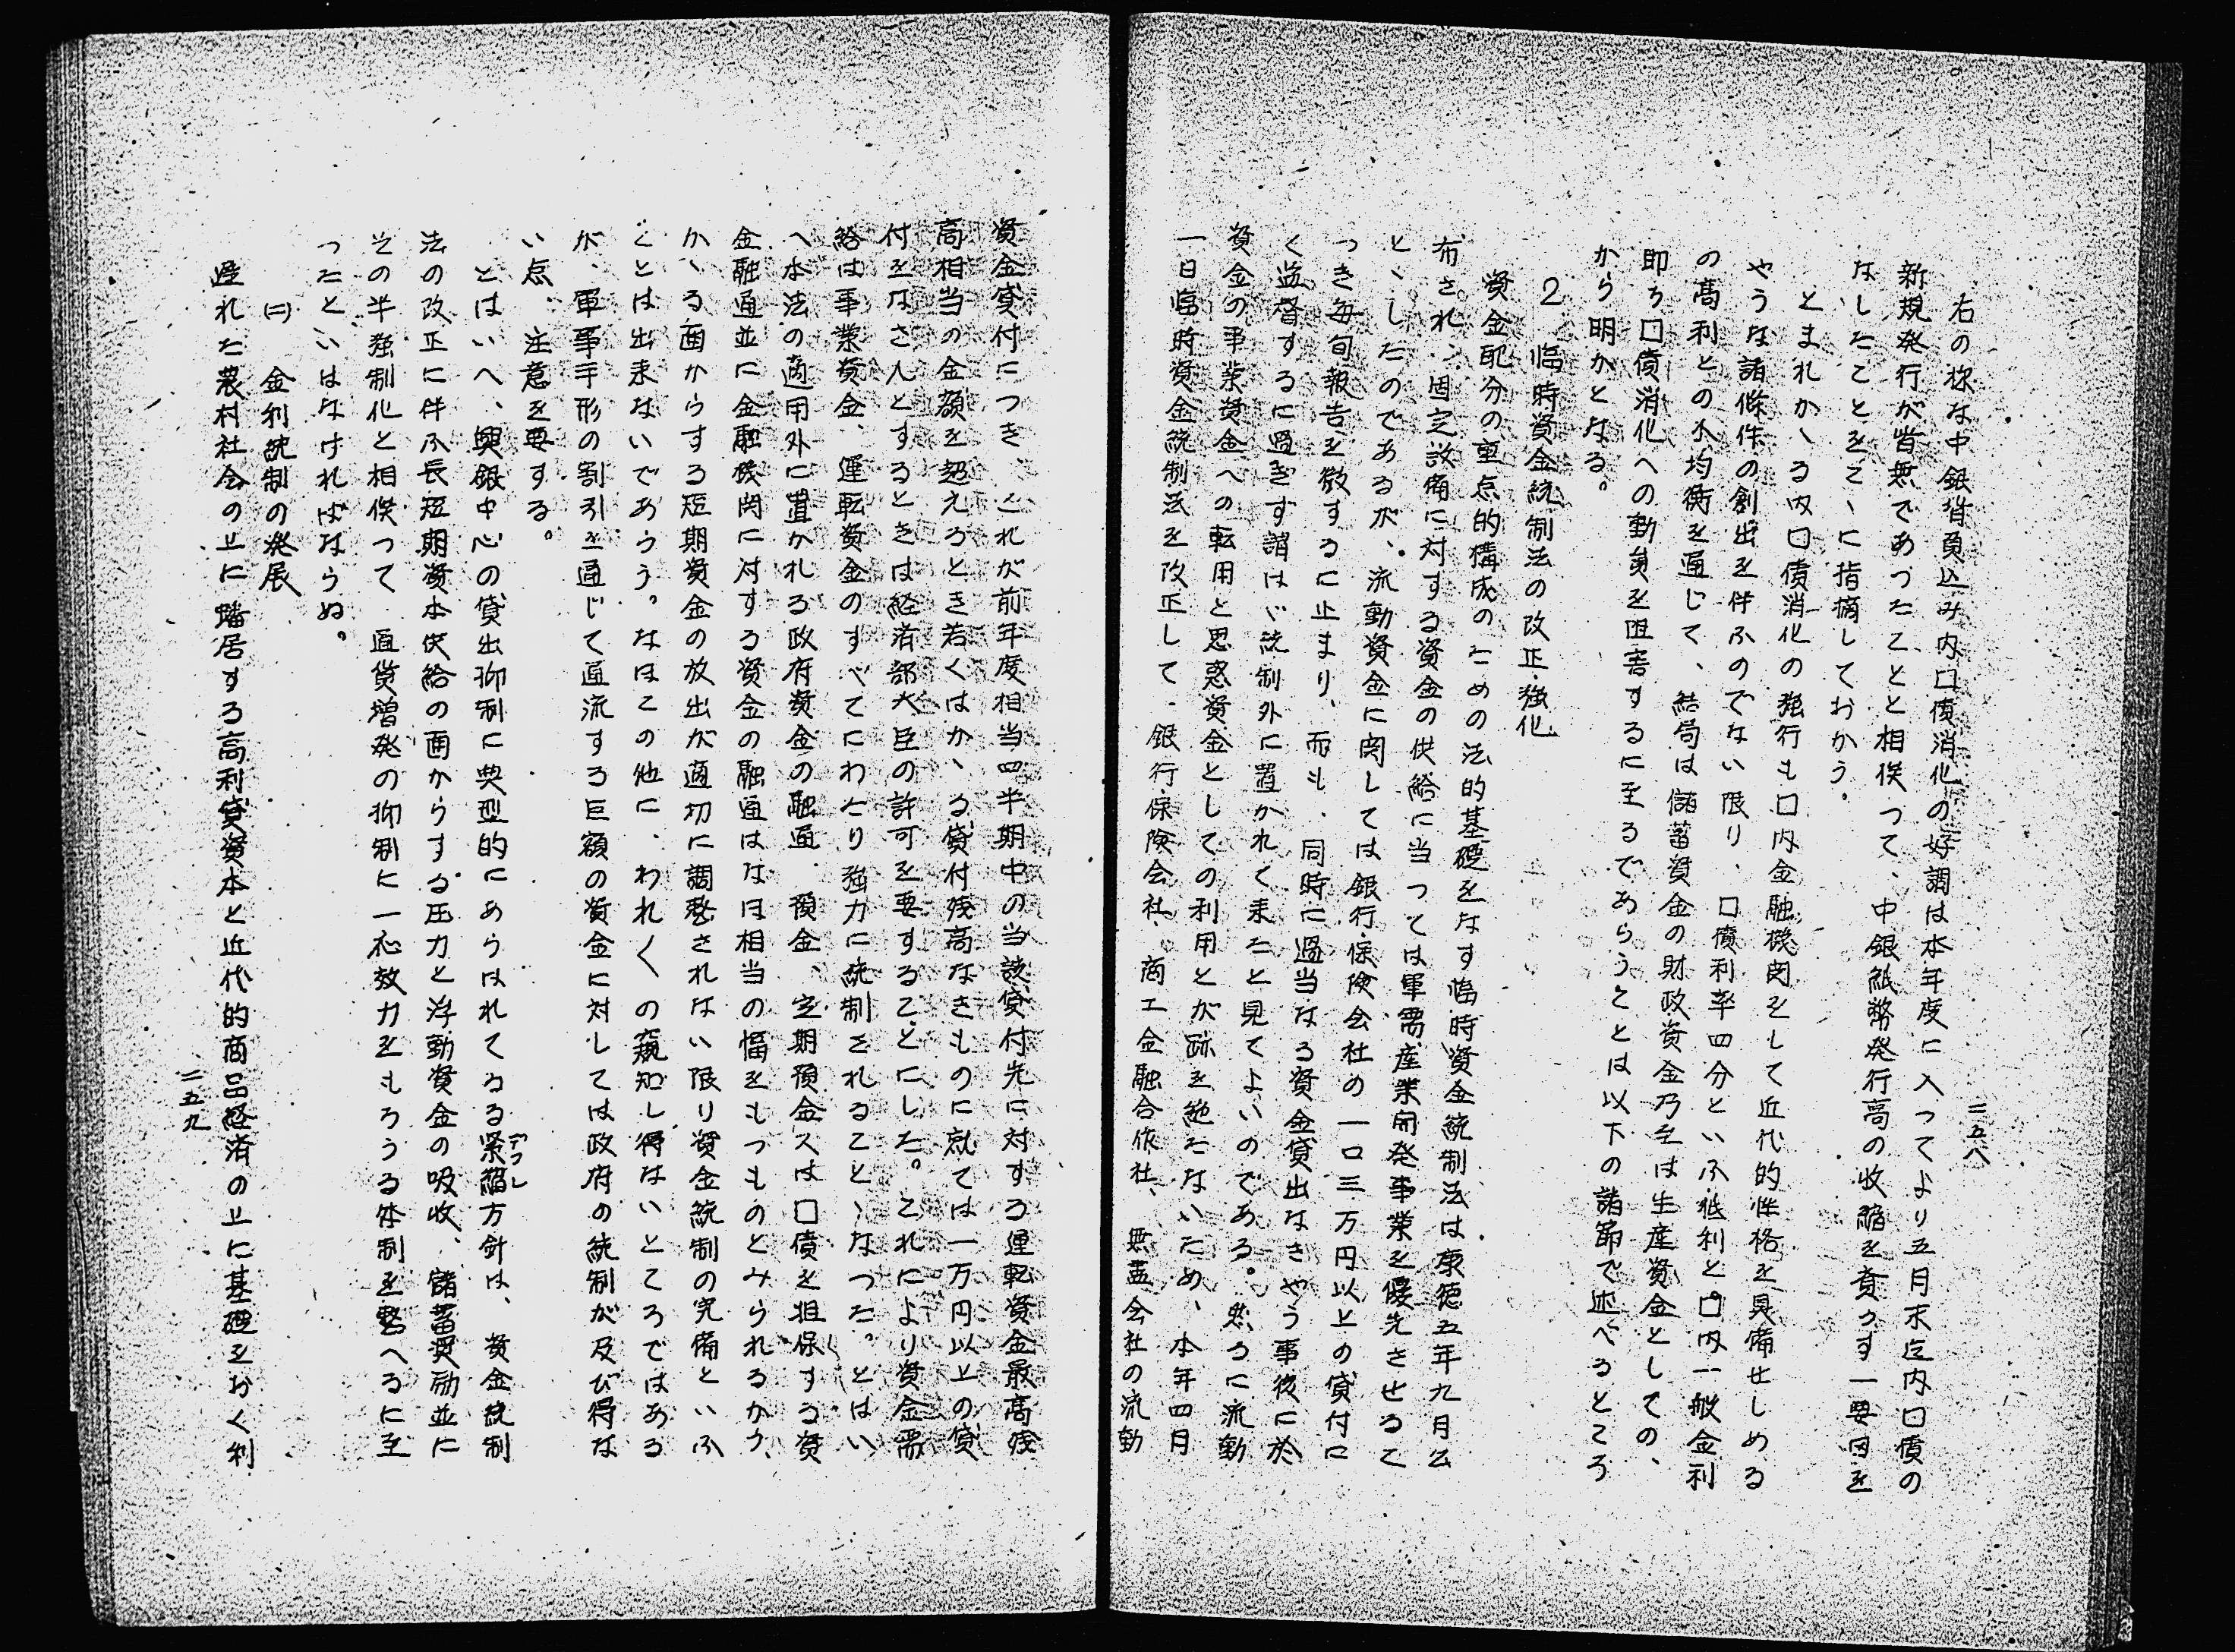 二五八
右の様な中銀背負込み内口債消化の好調は本年度に入つてより五月末迄内口債の
新規発行が皆無であつたことと相俟つて、中銀紙幣発行高の收縮を資らす一要因を
なしたことをこゝに指摘しておかう。
とまれかゝる内口債消化の強行も口内金融機関をして近代的性格を具備せしめる
やうな諸條件の創出を伴ふのでない限り、口債利率四分といふ低利と口内一般金利
の高利との不均衡を通じて、結局は儲蓄資金の財政資金乃至は生産資金としての、
即ち口債消化への動員を阻害するに至るであらうことは以下の諸節で述べるところ
から明かとなる。
2 臨時資金統制法の改正強化
資金配分の重点的構成のための法的基礎をなす臨時資金統制法は康徳五年九月公
布され、固定設備に対する資金の供給に当つては軍需産業開発事業を優先させるこ
とゝしたのであるが、流動資金に関しては銀行保険会社の一口三万円以上の貸付に
つき毎旬報告を徴するに止まり、而も、同時に過当なる資金貸出なきやう事後に於
く監督するに過ぎず謂はゞ統制外に置かれく来たと見てよいのである。然るに流動
資金の事業資金への転用と思惑資金としての利用とが跡を絶たないため、本年四月
一日臨時資金統制法を改正して、銀行保険会社、商工金融合作社、無盡会社の流動
資金貸付につき、これが前年度相当四半期中の当該貸付先に対する運転資金最高残
高相当の金額を超えるとき若くはかゝる貸付残高なきものに就ては一万円以上の貸
付をなさんとするときは経済部大臣の許可を要することにした。これにより資金需
給は事業資金、運転資金のすべてにわたり強力に統制されることゝなつた。とはい
へ本法の適用外に置かれる政府資金の融通、預金、定期預金又は口債を担保する資
金融通並に金融機関に対する資金の融通はなほ相当の幅をもつものとみられるから、
かゝる面からする短期資金の放出が適切に調整されない限り資金統制の完備といふ
ことは出来ないであらう。なほこの他に、われ〱の窺知し得ないところではある
が、軍事手形の割引を通じて通流する巨額の資金に対しては政府の統制が及び得な
い点、注意を要する。
とはいへ、興銀中心の貸出抑制に典型的にあらはれてゐる緊縮方針は、資金統制
法の改正に伴ふ長短期資本供給の面からする圧力と浮動資金の吸收、儲蓄奨励並に
その半強制化と相俟つて通貨増発の抑制に一応効力をもらうる体制を整へるに至
つたといはなければならぬ。
㈡ 金利統制の発展
遅れた農村社会の上に蟠居する高利貸資本と近代的商品経済の上に基礎をおく利
二五九